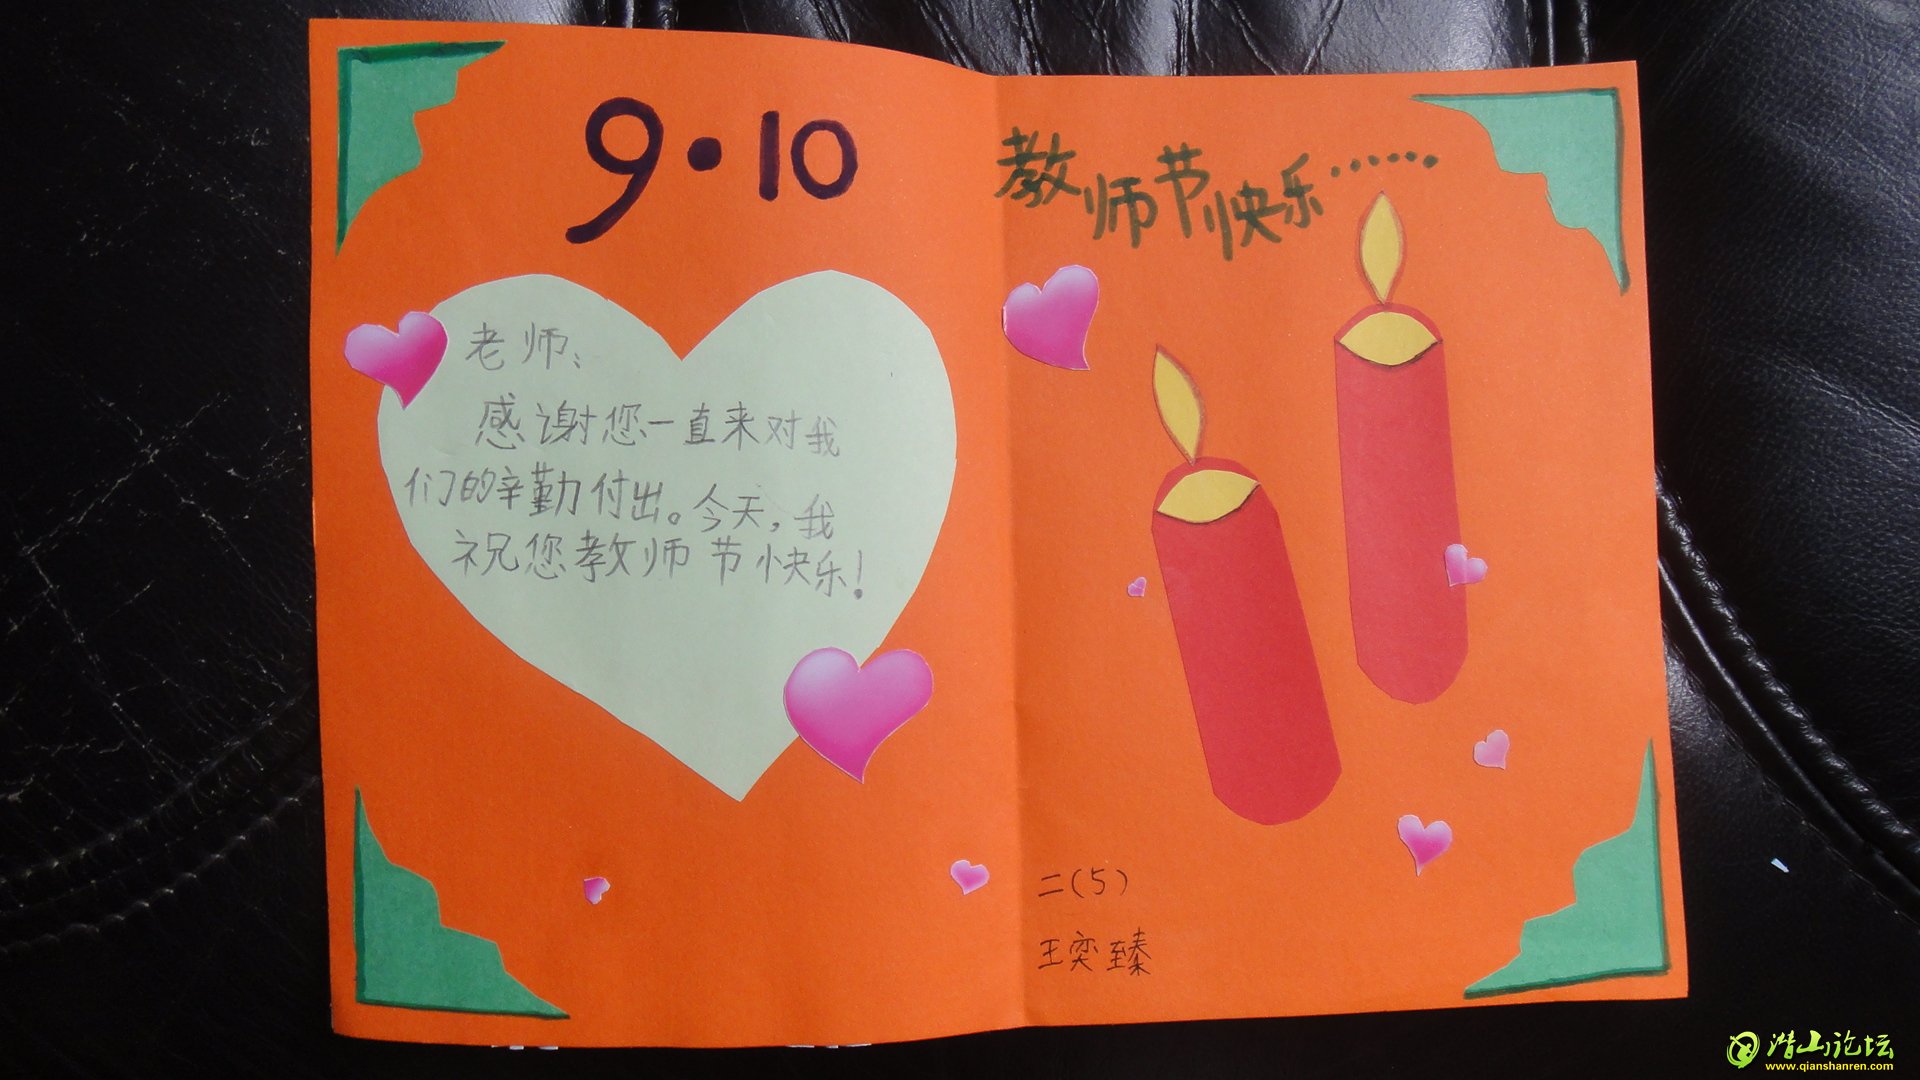 9·10
老师:
感谢您一直来对我
们的辛勤付出。今天,我
祝您教师节快乐!
教师节快乐······
二(5)
王奕臻
潜山论坛
www.qianshanren.com